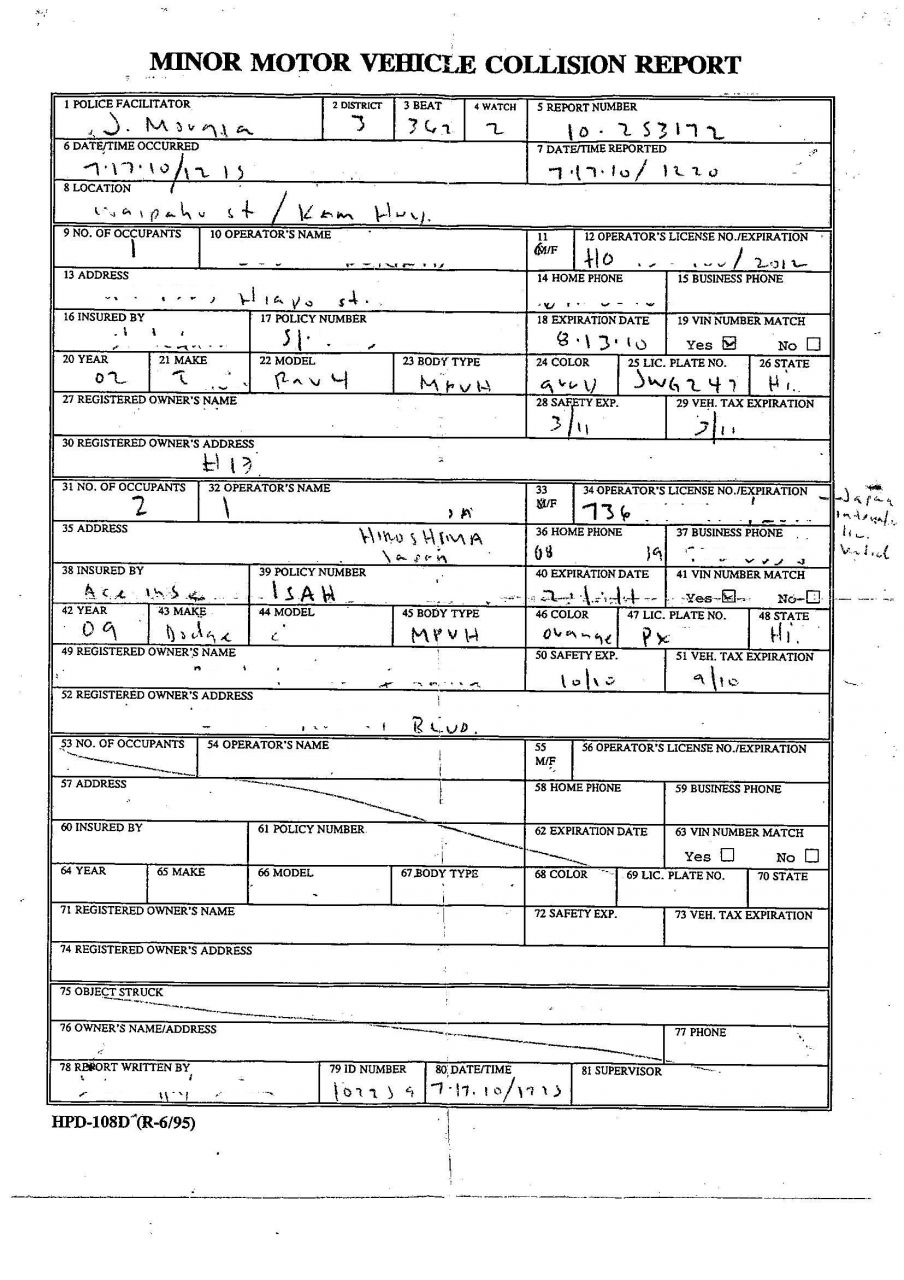 MINOR MOTOR VEHICLE COLLISION REPORT
1 POLICE FACILITATOR
2 DISTRICT
3
3 BEAT
362
4 WATCH
2
5 REPORT NUMBER
10-253172
6 DATE/TIME OCCURRED
7.17.10/1215
7 DATE/TIME REPORTED
7.17.10/1220
8 LOCATION
Waipahu st / Kam Hwy.
9 NO. OF OCCUPANTS
1
10 OPERATOR'S NAME
11
M/F
12 OPERATOR'S LICENSE NO./EXPIRATION
H0 / 2012
13 ADDRESS
st.
14 HOME PHONE
15 BUSINESS PHONE
16 INSURED BY
17 POLICY NUMBER
18 EXPIRATION DATE
8.13.10
19 VIN NUMBER MATCH
Yes No
20 YEAR
02
21 MAKE
T
22 MODEL
Rav4
23 BODY TYPE
MPVH
24 COLOR
25 LIC. PLATE NO.
JWG247
26 STATE
Hi.
27 REGISTERED OWNER'S NAME
28 SAFETY EXP.
3/11
29 VEH. TAX EXPIRATION
3/11
30 REGISTERED OWNER'S ADDRESS
31 NO. OF OCCUPANTS
2
32 OPERATOR'S NAME
33
M/F
34 OPERATOR'S LICENSE NO./EXPIRATION
736
Japan
35 ADDRESS
HIROSHIMA
Japan
36 HOME PHONE
08 19
37 BUSINESS PHONE
38 INSURED BY
Ace Ins
39 POLICY NUMBER
ISAH
40 EXPIRATION DATE
41 VIN NUMBER MATCH
Yes No
42 YEAR
09
43 MAKE
Dodge
44 MODEL
45 BODY TYPE
MPVH
46 COLOR
Orange
47 LIC. PLATE NO.
PX
48 STATE
Hi.
49 REGISTERED OWNER'S NAME
50 SAFETY EXP.
10/10
51 VEH. TAX EXPIRATION
9/10
52 REGISTERED OWNER'S ADDRESS
BLVD.
53 NO. OF OCCUPANTS
54 OPERATOR'S NAME
55
M/F
56 OPERATOR'S LICENSE NO./EXPIRATION
57 ADDRESS
58 HOME PHONE
59 BUSINESS PHONE
60 INSURED BY
61 POLICY NUMBER
62 EXPIRATION DATE
63 VIN NUMBER MATCH
Yes No
64 YEAR
65 MAKE
66 MODEL
67 BODY TYPE
68 COLOR
69 LIC. PLATE NO.
70 STATE
71 REGISTERED OWNER'S NAME
72 SAFETY EXP.
73 VEH. TAX EXPIRATION
74 REGISTERED OWNER'S ADDRESS
75 OBJECT STRUCK
76 OWNER'S NAME/ADDRESS
77 PHONE
78 REPORT WRITTEN BY
79 ID NUMBER
80 DATE/TIME
7.17.10/
81 SUPERVISOR
HPD-108D (R-6/95)